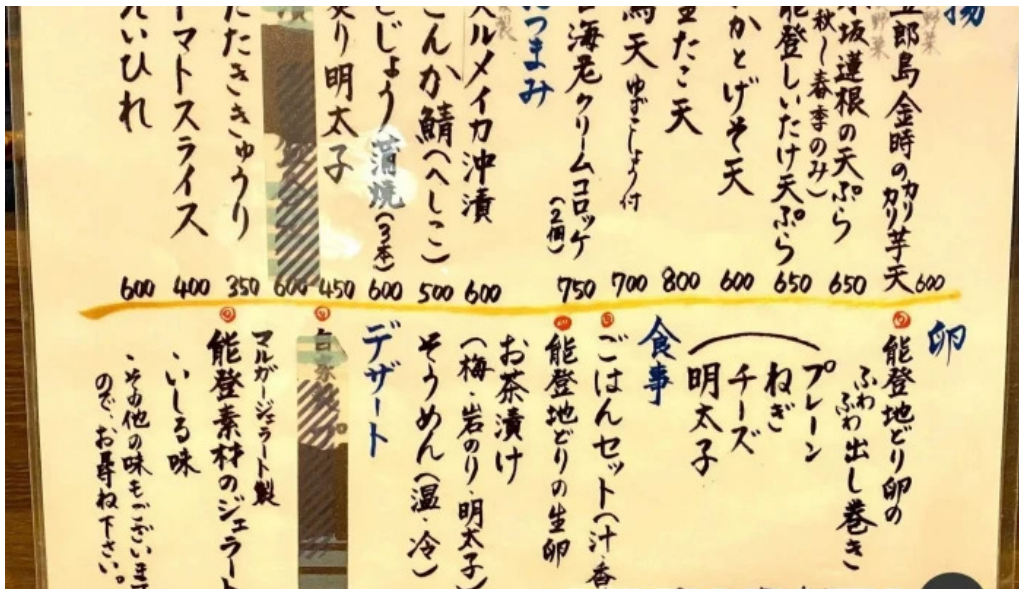 揚
五郎島金時のカリカリ芋天 600
坂蓮根の天ぷら 650
秋〜春季のみ)
能登しいたけ天ぷら 650
かとげそ天 600
たこ天 800
天 ゆずこしょう付 700
海老クリームコロッケ 750
(2個)
つまみ
スルメイカ沖漬 600
こんか鯖(へしこ) 500
どじょう蒲焼(3本) 600
り明太子 450
600
たたききゅうり 350
マトスライス 400
いひれ 600
卵
能登地どり卵の
ふわふわ出し巻き
プレーン
ねぎ
チーズ
明太子
食事
ごはんセット(汁・香
能登地どりの生卵
お茶漬け
(梅・岩のり・明太子)
そうめん(温・冷)
デザート
マルガージェラート製
能登素材のジェラート
・いしる味
・その他の味もございます
ので、お尋ね下さい。